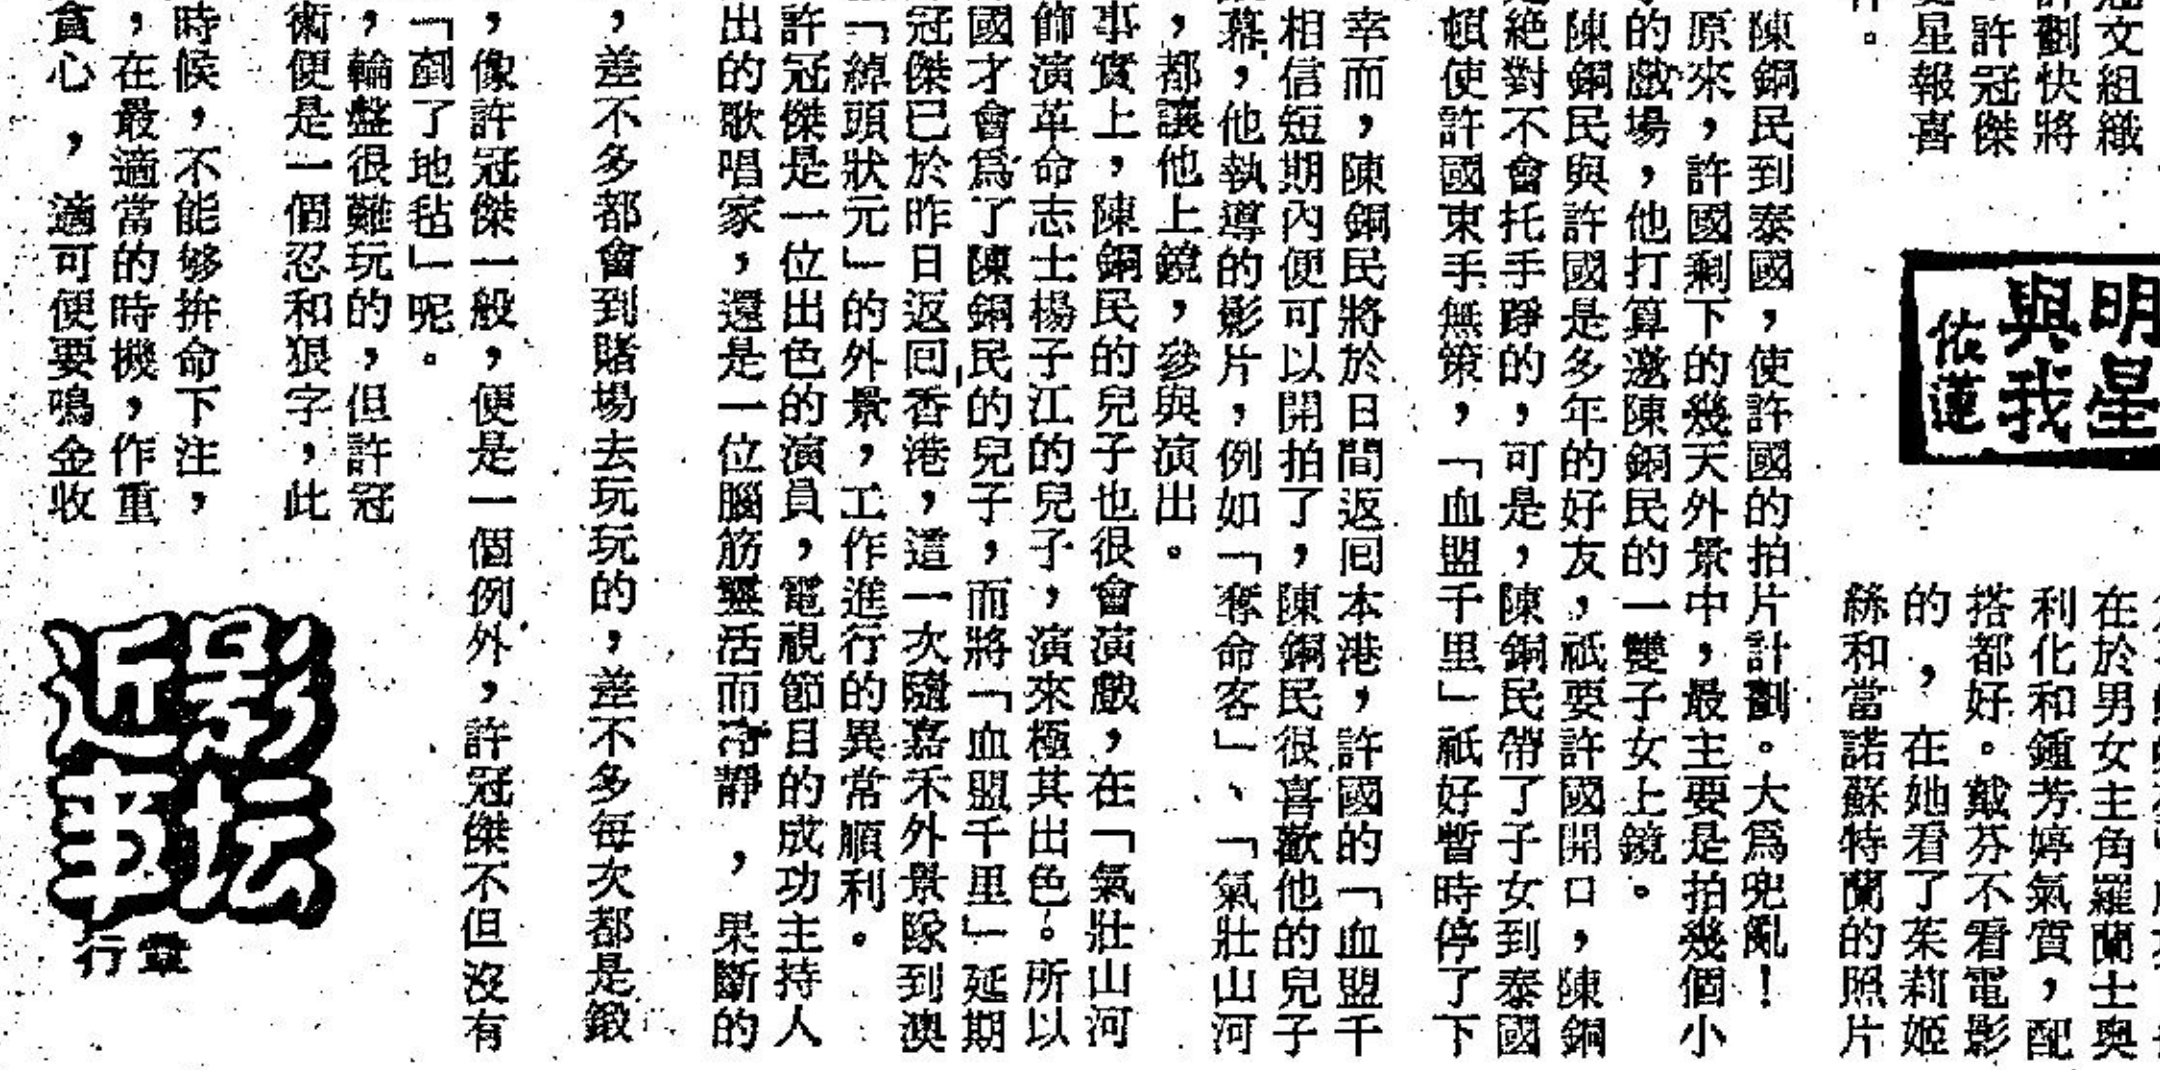 文組織
劃快將
，許冠傑
星報喜
。
明星
與我
依蓮
在於男女主角羅蘭士奧
利化和鍾芳婷氣質，配
搭都好。戴芬不看電影
的，在她看了茱莉姬
絲和當諾蘇特蘭的照片
陳銅民到泰國，使許國的拍片計劃。大爲兜亂！
原來，許國剩下的幾天外景中，最主要是拍幾個小
的戲場，他打算邀陳銅民的一雙子女上鏡。
陳銅民與許國是多年的好友，祇要許國開口，陳銅
絕對不會托手踭的，可是，陳銅民帶了子女到泰國
頓使許國束手無策，「血盟千里」祇好暫時停了下
幸而，陳銅民將於日間返回本港，許國的「血盟千
相信短期內便可以開拍了，陳銅民很喜歡他的兒子
幕，他執導的影片，例如「奪命客」、「氣壯山河
，都讓他上鏡，參與演出。
事實上，陳銅民的兒子也很會演戲，在「氣壯山河
飾演革命志士楊子江的兒子，演來極其出色。所以
國才會爲了陳銅民的兒子，而將「血盟千里」延期
冠傑已於昨日返回香港，這一次隨嘉禾外景隊到澳
「綽頭狀元」的外景，工作進行的異常順利。
許冠傑是一位出色的演員，電視節目的成功主持人
出的歌唱家，還是一位腦筋靈活而冷靜，果斷的
，差不多都會到賭場去玩玩的，差不多每次都是鍛
，像許冠傑一般，便是一個例外，許冠傑不但沒有
「剷了地毡」呢。
，輪盤很難玩的，但許冠
術便是一個忍和狠字，此
時候，不能够拚命下注，
，在最適當的時機，作重
貪心，適可便要鳴金收
影坛
近事
章行